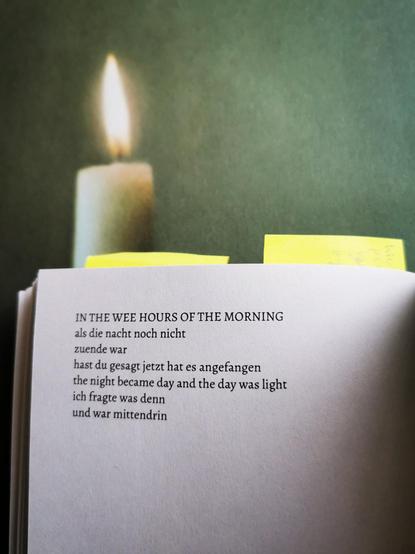 IN THE WEE HOURS OF THE MORNING
als die nacht noch nicht
zuende war
hast du gesagt jetzt hat es angefangen
the night became day and the day was light
ich fragte was denn
und war mittendrin